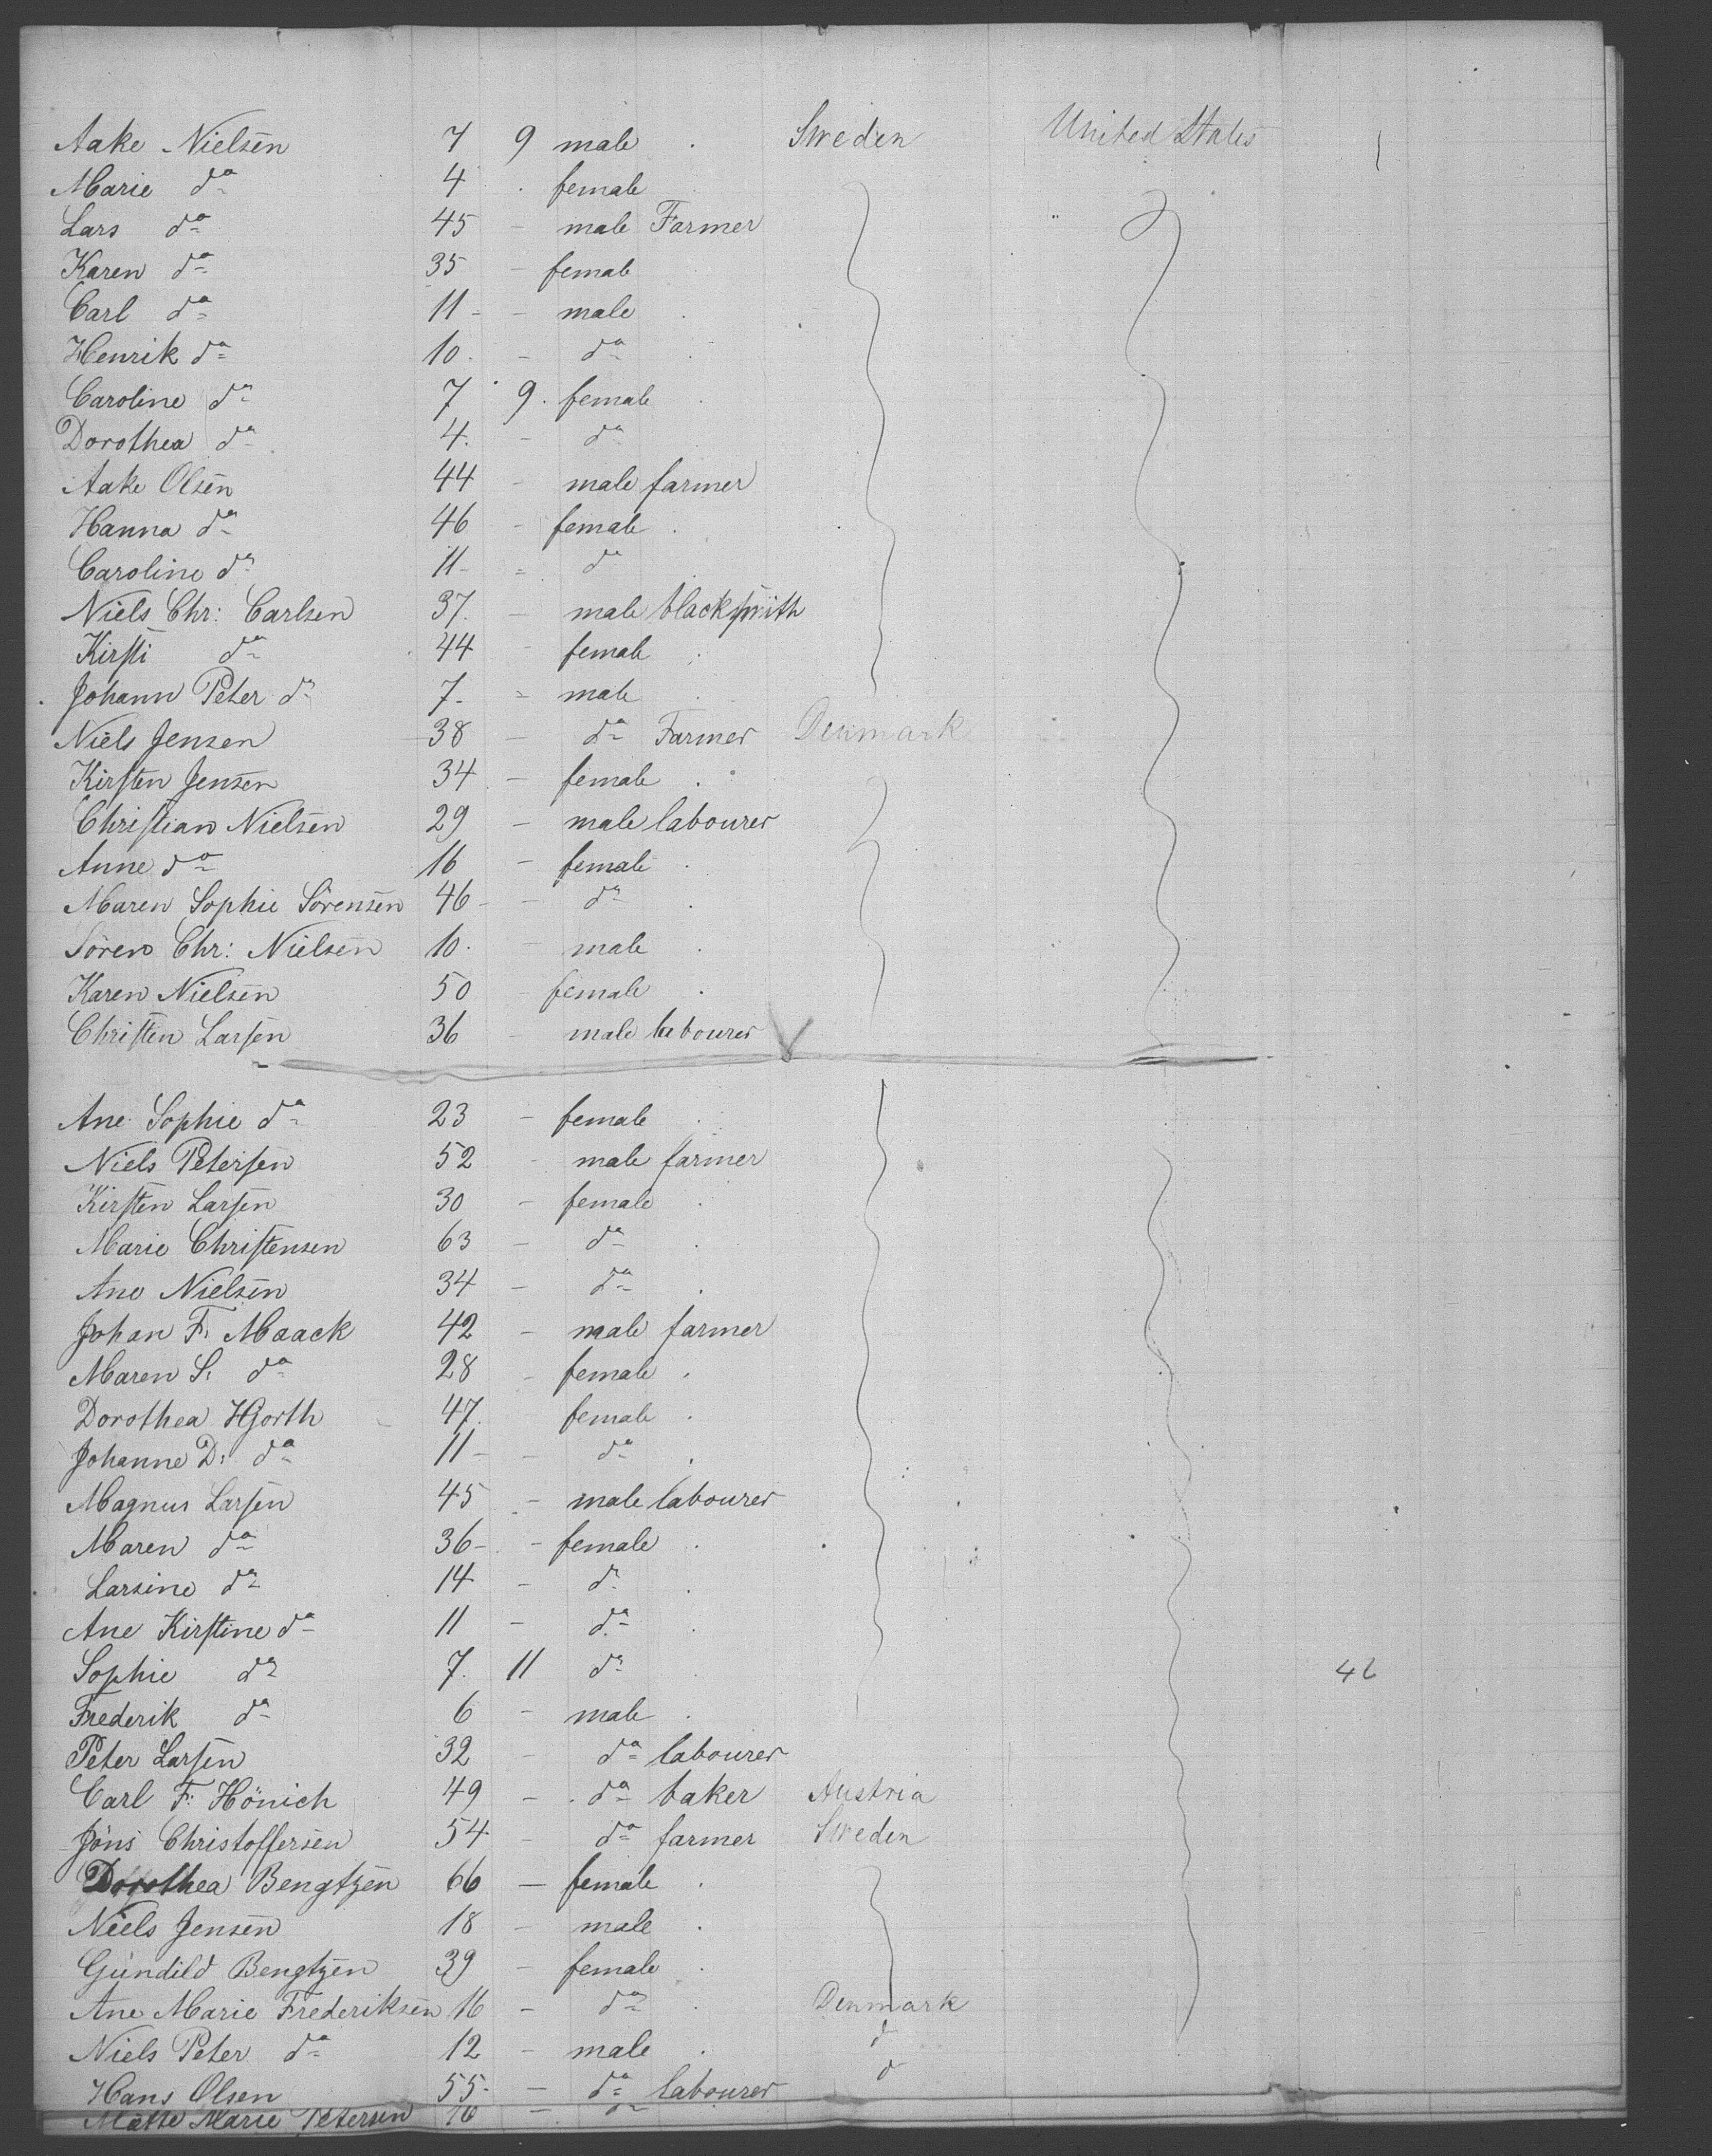 Aake Nielsen 7 9 male Sweden United States 1
Marie do 4 female
Lars do 45 - male Farmer
Karen do 35 - female
Carl do 11 - male
Henrik do 10 - do
Caroline do 7 9 female
Dorothea do 4 - do
Aake Olsen 44 - male farmer
Hanna do 46 - female
Caroline do 11 - do
Niels Chr: Carlsen 37 - male blacksmith
Kirsti do 44 - female
Johann Peter do 7 - male
Niels Jensen 38 - do Farmer Denmark
Kirsten Jensen 34 - female
Christian Nielsen 29 - male labourer
Anne do 16 - female
Maren Sophie Sörensen 46 - do
Sören Chr: Nielsen 10 - male
Karen Nielsen 50 - female
Christen Larsen 36 - male labourer
Ane Sophie do 23 - female
Niels Petersen 52 - male farmer
Kirsten Larsen 30 - female
Marie Christensen 63 - do
Ane Nielsen 34 - do
Johan F. Maack 42 - male farmer
Maren S. do 28 - female
Dorothea Hjorth 47 female
Johanne D: do 11 - do
Magnus Larsen 45 - male labourer
Maren do 36 - female
Larsine do 14 - do
Ane Kirstine do 11 - do
Sophie do 7 11 do 46
Frederik do 6 - male
Peter Larsen 32 - do labourer
Carl F: Hönich 49 - do baker Austria
Jöns Christoffersen 54 - do farmer Sweden
Dorothea Bengtzen 66 - female
Niels Jensen 18 - male
Gundild Bengtzen 39 - female
Ane Marie Frederiksen 16 - do Denmark
Niels Peter do 12 - male d
Hans Olsen 55 - do labourer d
Mette Marie Petersen 16 - do